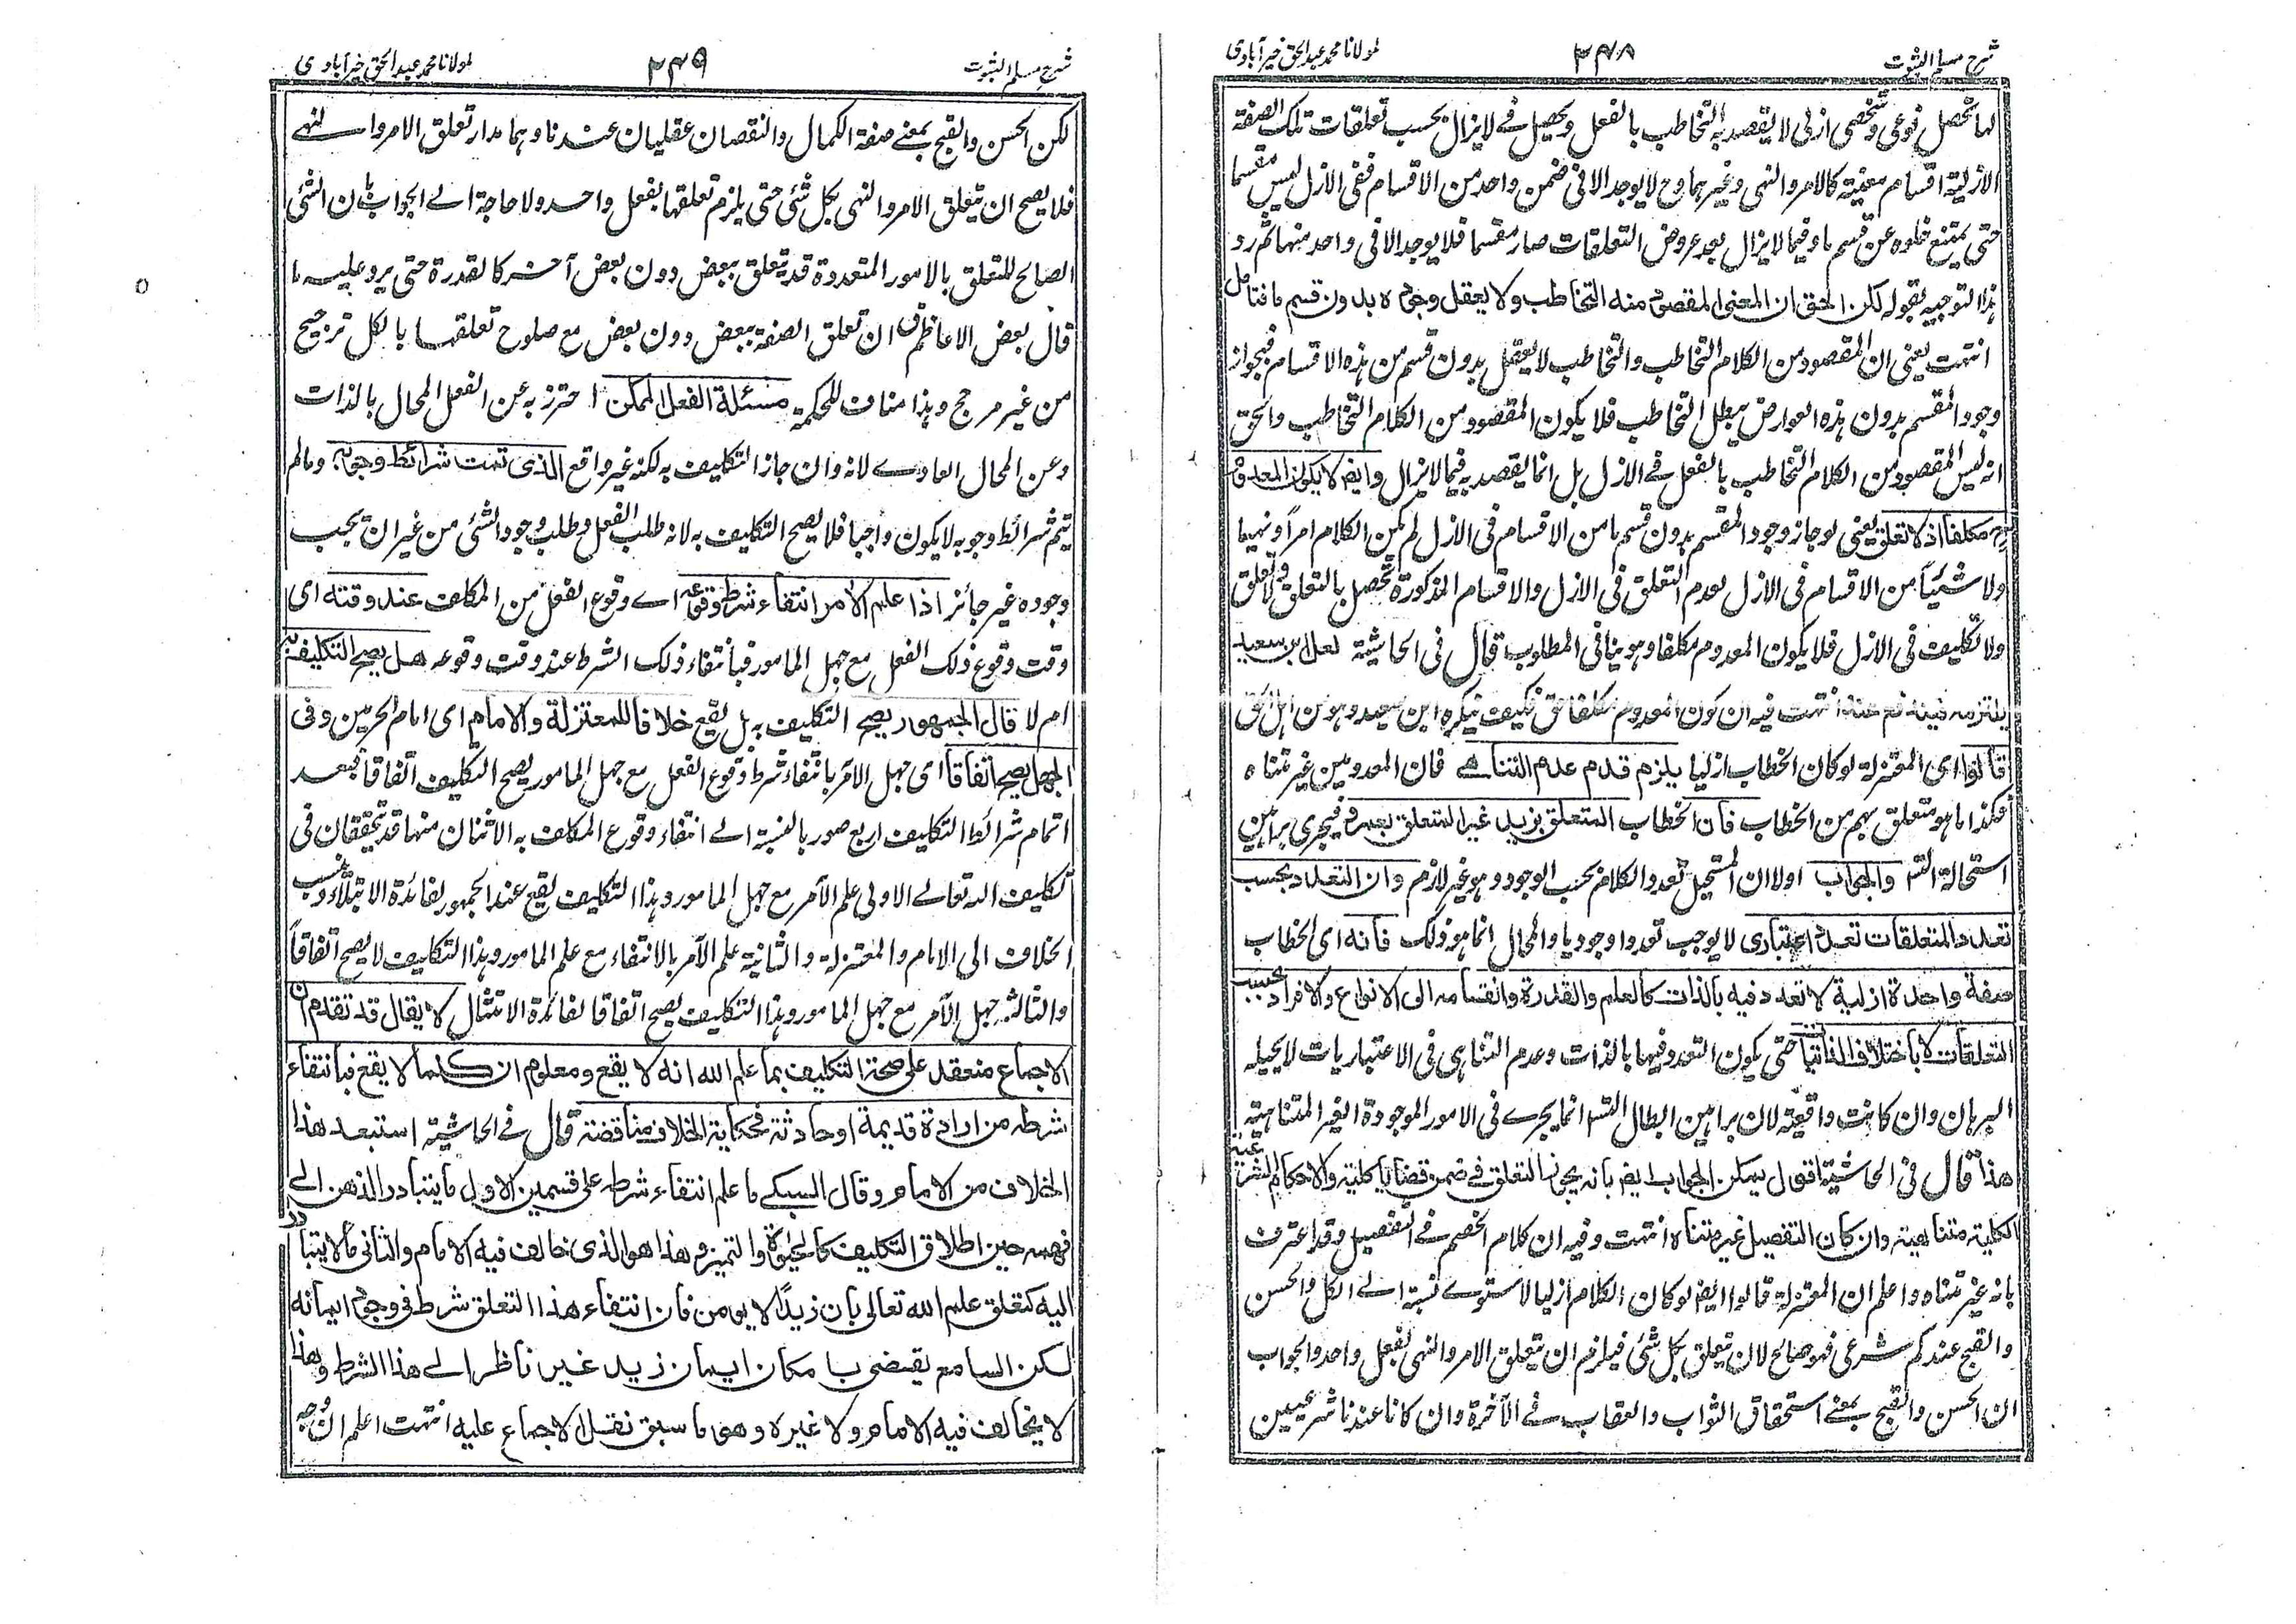 شرح مسلم الثبوت
۲۴۸
لمولانا محمد عبدالحق خیرآبادی
لها تحصل نوعی وشخصی ازلی لا یقصد به التخاطب بالفعل ویحصل فے لایزال بحسب تعلقات تلک الصفة
الازلیة اقسام معینة کالامر والنهی وغیرهما وح لا یوجد الا فی ضمن واحد من الاقسام ففی الازل لیس مقسما
حتی یمتنع خلوه عن قسم ما وفیما لایزال بعد عروض التعلقات صار مقسما فلا یوجد الا فی واحد منها ثم رد
هذا التوجیه بقوله لکن الحق ان المعنی المقصود منه التخاطب ولا یعقل وجوده بدون قسم ما فتامل
انتهت یعنی ان المقصود من الکلام التخاطب والتخاطب لا یعقل بدون قسم من هذه الاقسام فبجواز
وجود المقسم بدون هذه العوارض یبطل التخاطب فلا یکون المقصود من الکلام التخاطب والحق
انه لیس المقصود من الکلام التخاطب بالفعل فے الازل بل انما یقصد به فیما لایزال وایضا لا یکون المعدوم
ح مکلفا اذ لا تعلق یعنی لو جاز وجود المقسم بدون قسم ما من الاقسام فی الازل لم یکن الکلام امراً ونهیا
ولا شیئاً من الاقسام فی الازل لعدم التعلق فی الازل والاقسام المذکورة تحصل بالتعلق ولا تعلق
ولا تکلیف فی الازل فلا یکون المعدوم مکلفا وهو ینافی المطلوب قال فی الحاشیة لعل ابن سعید
یلتزمه انتهت فیه ان کون المعدوم مکلفا حق فکیف ینکره ابن سعید وهو من اهل الحق
قالوا ای المعتزلة لو کان الخطاب ازلیا یلزم قدم عدم التناهے فان المعدومین غیر متناه
فکذا ما هو متعلق بهم من الخطاب فان الخطاب المتعلق بزید غیر المتعلق بعمرو فیجری براهین
استحالة التس والجواب اولا ان المستحیل تعدد الکلام بحسب الوجود وهو غیر لازم وان التعدد بحسب
تعدد المتعلقات تعدد اعتباری لا یوجب تعددا وجودیا والمحال انما هو ذلک فانه ای الخطاب
صفة واحدة ازلیة لا تعدد فیه بالذات کالعلم والقدرة وانقسامه الی الانواع والافراد بحسب
التعلقات لا باختلاف الذاتیات حتی یکون التعدد فیها بالذات وعدم التناهی فی الاعتباریات لا یحیله
البرهان وان کانت واقعیة لان براهین ابطال التس انما یجرے فی الامور الموجودة الغیر المتناهیة
هذا قال فی الحاشیة اقول یمکن الجواب ایضا بانه یجوز التعلق فے ضمن قضایا کلیة والاحکام الشرعیة
الکلیة متناهیة وان کان التفصیل غیر متناه انتهت وفیه ان کلام الخصم فے التفصیل وقد اعترف
بانه غیر متناه واعلم ان المعتزلة قالوا ایضا لو کان الکلام ازلیا لاستوے نسبة الے الکل والحسن
والقبح عندکم شرعی فهو صالح لان یتعلق بکل شئ فیلزم ان یتعلق الامر والنهی بفعل واحد والجواب
ان الحسن والقبح بمعنے استحقاق الثواب والعقاب فے الآخرة وان کانا عندنا شرعیین
شرح مسلم الثبوت
۲۴۹
لمولانا محمد عبدالحق خیرآبادی
لکن الحسن والقبح بمعنے صفة الکمال والنقصان عقلیان عندنا وهما مدار تعلق الامر والنهے
فلا یصح ان یتعلق الامر والنهی بکل شئ حتی یلزم تعلقها بفعل واحد ولا حاجة الے الجواب بان الشئ
الصالح للتعلق بالامور المتعددة قد یتعلق ببعض دون بعض آخر کالقدرة حتی یرد علیه ما
قال بعض الاعاظم ان تعلق الصفة ببعض دون بعض مع صلوح تعلقها بالکل ترجیح
من غیر مرجح وهذا مناف للحکمة مسئلة الفعل الممکن احترز به عن الفعل المحال بالذات
وعن المحال العادے لانه وان جاز التکلیف به لکنه غیر واقع الذی تمت شرائط وجوبه ومالم
یتم شرائط وجوبه لا یکون واجبا فلا یصح التکلیف به لانه طلب الفعل وطلب وجود الشئ من غیر ان یجب
وجوده غیر جائز اذا علم الآمر انتفاء شرط وقوعه اے وقوع الفعل من المکلف عند وقته ای
وقت وقوع ذلک الفعل مع جهل المامور فبانتفاء ذلک الشرط عند وقت وقوعه هل یصح التکلیف به
ام لا قال الجمهور یصح التکلیف به بل یقع خلافا للمعتزلة والامام ای امام الحرمین وفی
الجهل یصح اتفاقا ای جهل الآمر بانتفاء شرط وقوع الفعل مع جهل المامور یصح التکلیف اتفاقا فبعد
اتمام شرائط التکلیف اربع صور بالنسبة الے انتفاء وقوع المکلف به الاثنان منها قد یتحققان فی
تکلیف الله تعالے الاولی علم الآمر مع جهل المامور وهذا التکلیف یقع عند الجمهور لفائدة الابتلاء ونسب
الخلاف الی الامام والمعتزلة والثانیة علم الآمر بالانتفاء مع علم المامور وهذا التکلیف لا یصح اتفاقاً
والثالثة جهل الآمر مع جهل المامور وهذا التکلیف یصح اتفاقا لفائدة الامتثال لا یقال قد تقدم ان
الاجماع منعقد علی صحة التکلیف بما علم الله انه لا یقع ومعلوم ان کلما لا یقع فبانتفاء
شرطه من ارادة قدیمة او حادثة فحکایة الخلاف مناقضة قال فے الحاشیة استبعد هذا
الخلاف من الامام وقال السبکے ما علم انتفاء شرطه علی قسمین الاول ما یتبادر الذهن الے
فهمه حین اطلاق التکلیف کالحیٰوة والتمیز وهذا هو الذی خالف فیه الامام والثانی ما لا یتبادر
الیه کتعلق علم الله تعالی بان زیداً لا یومن فان انتفاء هذا التعلق شرط فی وجود ایمانه
لکن السامع یقضی بامکان ایمان زید غیر ناظر الے هذا الشرط وهذا
لا یخالف فیه الامام ولا غیره وهو ما سبق نقل الاجماع علیه انتهت اعلم ان وجه